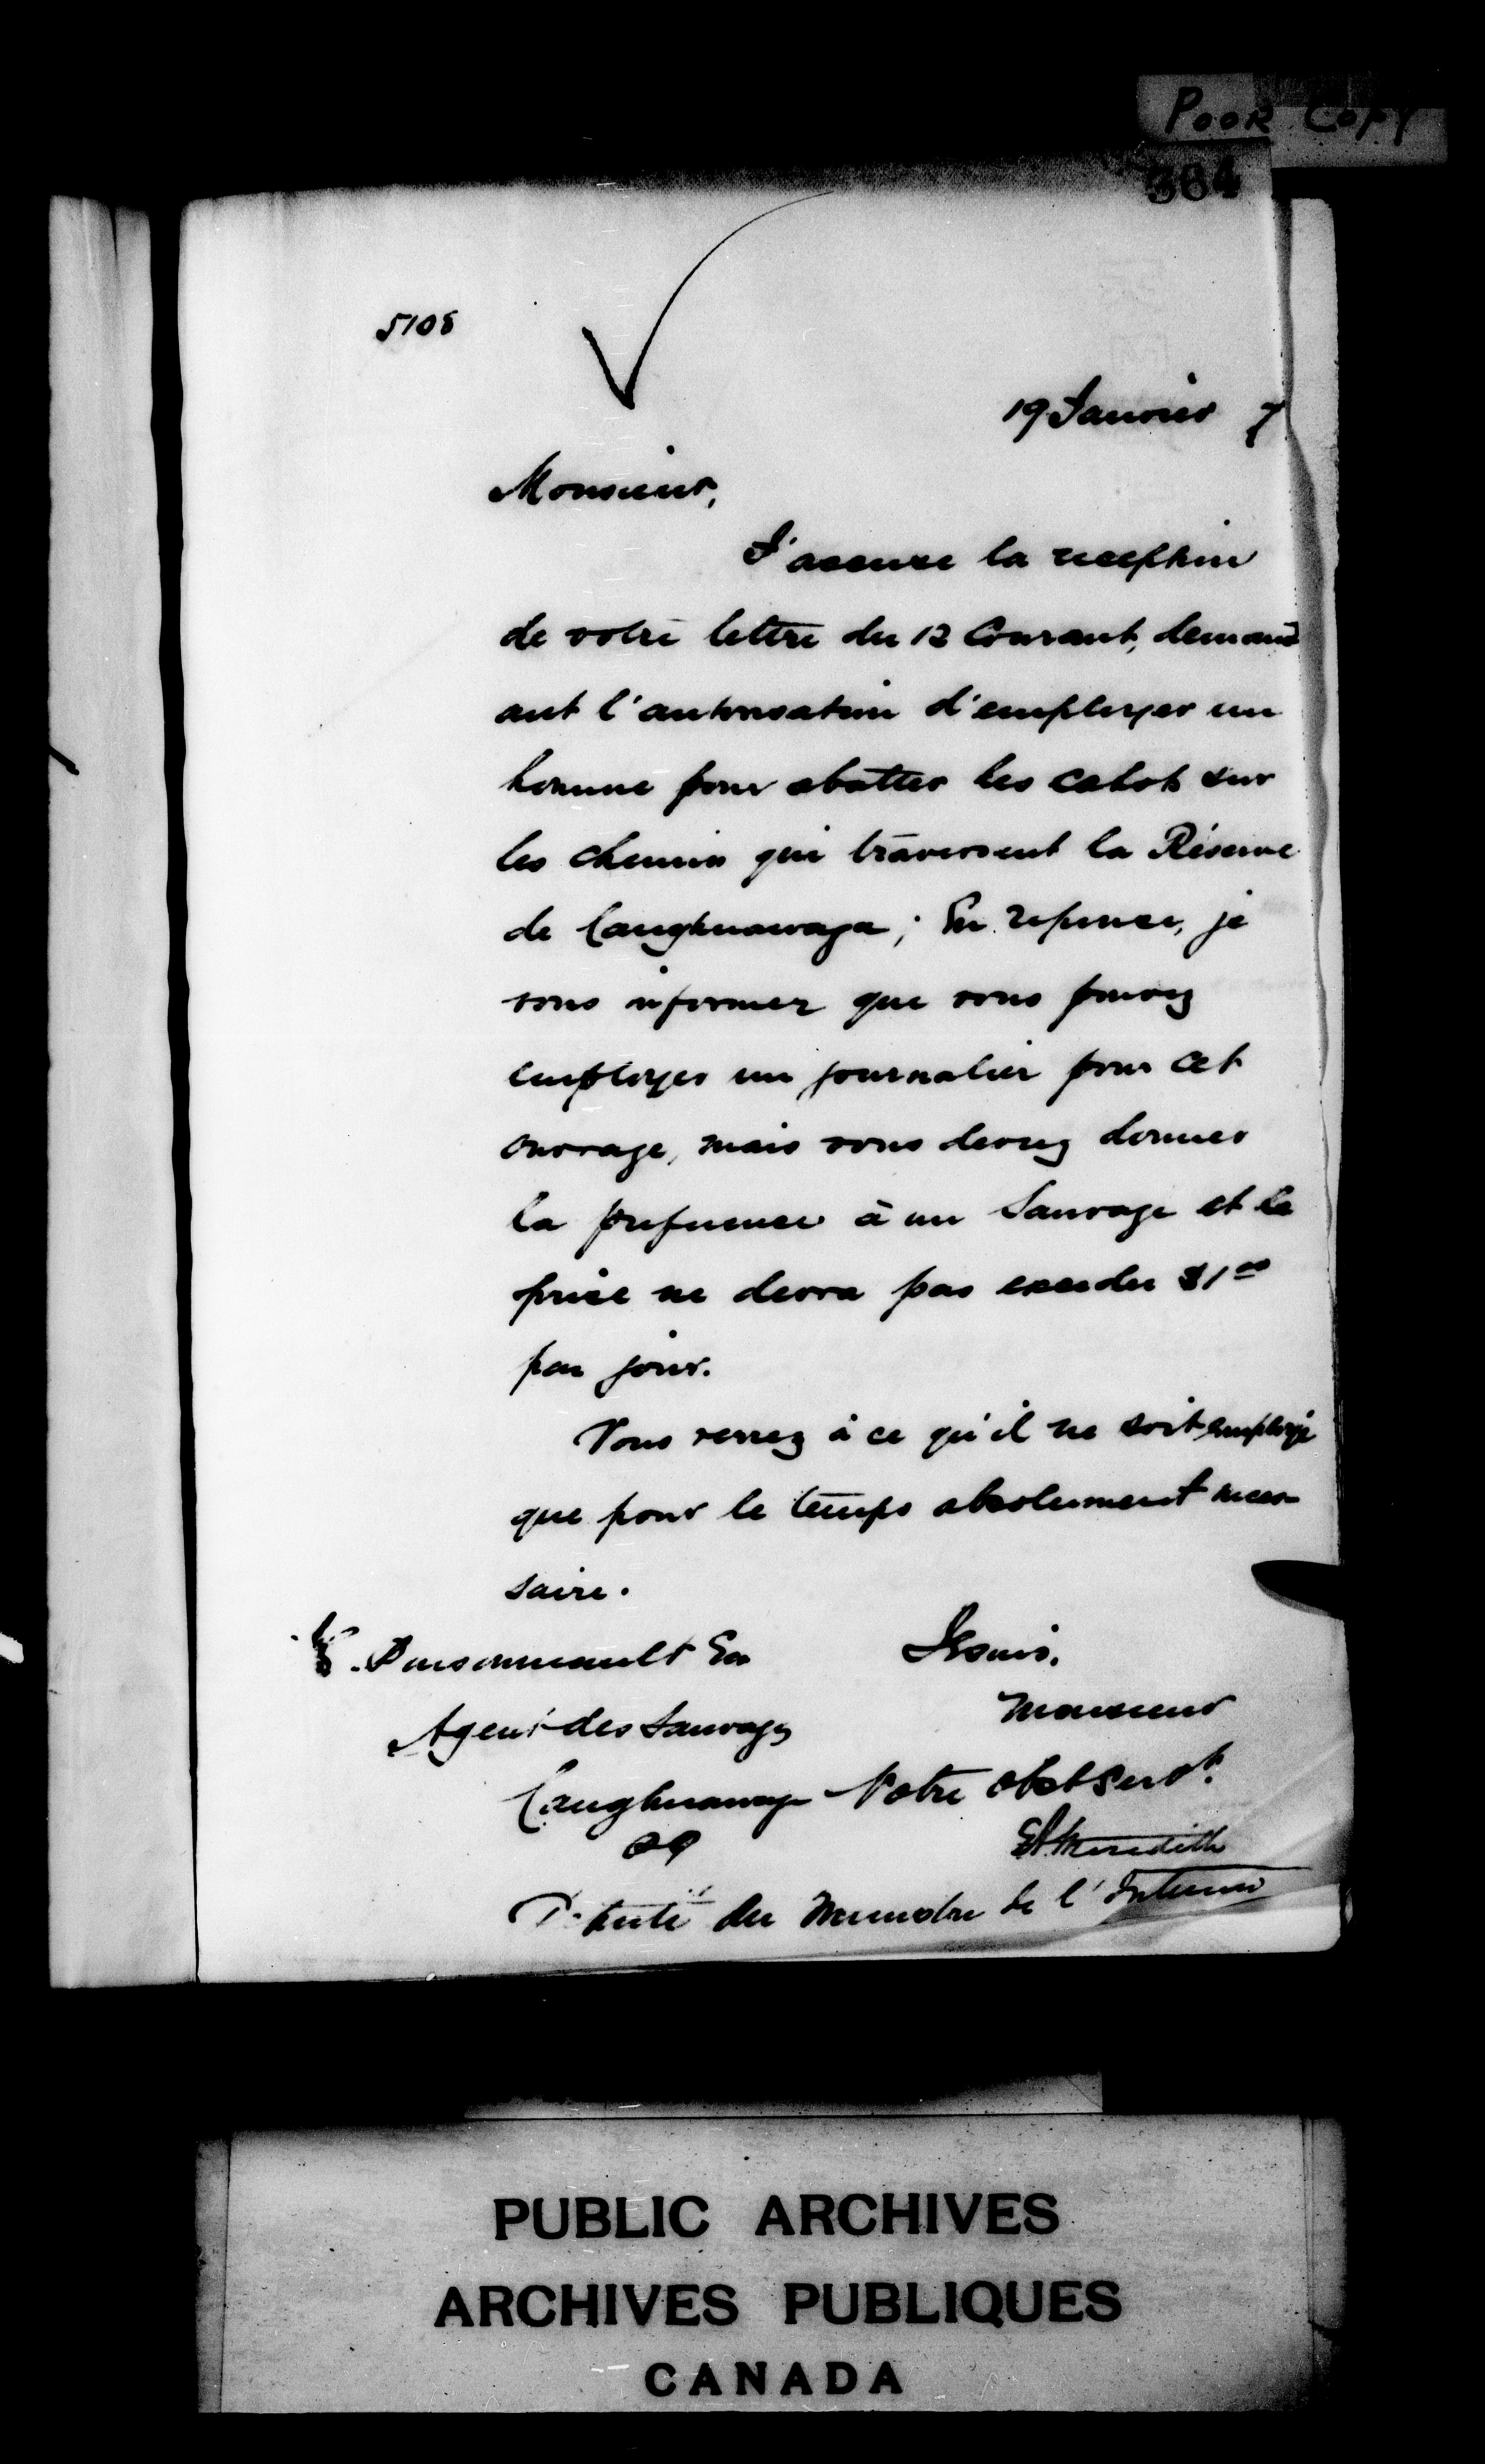 POOR COPY
364
5108
19 Janvier 7
Monsieur,
J'accuse la reception
de votre lettre du 12 Courant, demand
ant l'autorisation d'employer un
homme pour abatter les cahots sur
les chemins qui traversent la Réserve
de Caughnawaga ; En reponse, je
vous informer que vous pouvez
employer un journalier pour cet
ouvrage, mais vous devrez donner
la preference à un Sauvage et le
prix ne devra pas exceder $1.00
par jour.
Vous verrez à ce qu'il ne soit employé
que pour le temps absolument neces
saire.
Pinsonneault Esq
J'suis,
Agent des Sauvages
Monsieur
Caughnawaga
Votre obt Servt.
PQ
E A Meredith
Député du Ministre de l'Interieur
PUBLIC ARCHIVES
ARCHIVES PUBLIQUES
CANADA